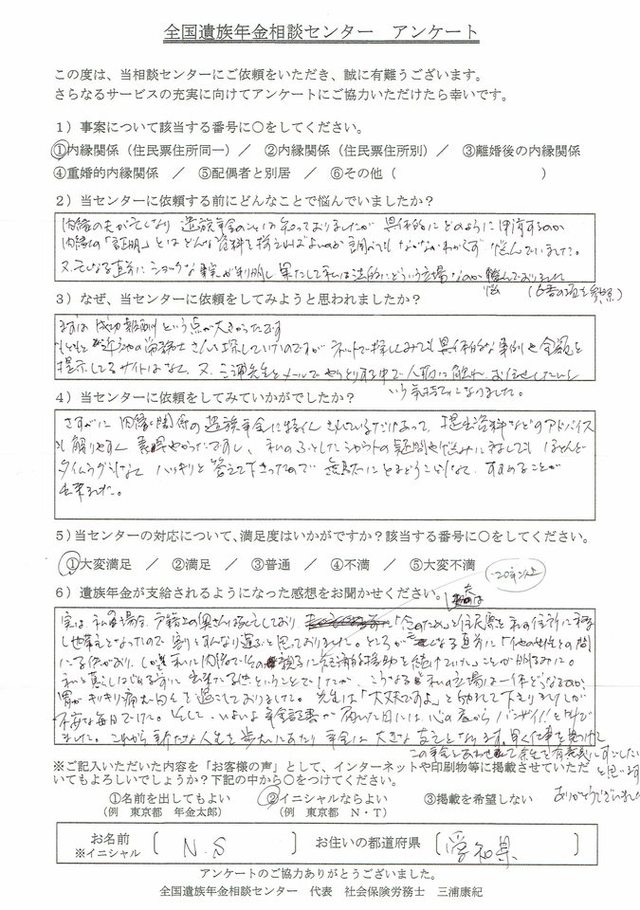 全国遺族年金相談センター　アンケート
この度は、当相談センターにご依頼をいただき、誠に有難うございます。
さらなるサービスの充実に向けてアンケートにご協力いただけたら幸いです。
1）事案について該当する番号に○をしてください。
①内縁関係（住民票住所同一）　／　②内縁関係（住民票住所別）　／　③離婚後の内縁関係
④重婚的内縁関係　／　⑤配偶者と別居　／　⑥その他（　　　　　　　　　）
2）当センターに依頼する前にどんなことで悩んでいましたか？
内縁の夫が亡くなり 遺族年金のことは知っておりましたが 具体的にどのように申請するのか
内縁の「証明」とはどんな資料を揃えればよいのか 調べてもなかなかわからず 悩んでいました。
又、亡くなる直前にショックな事実が判明し 果たして私は法的にどういう立場なのか 悩んでおりました
3）なぜ、当センターに依頼をしてみようと思われましたか？
まずは 成功報酬という点が大きかったです
もともと 近くの労務士さんを探していたのですが ネットで探してみても具体的な事例や金額を
提示してるサイトはなく、又、三浦先生とメールでやりとりする中で 人柄に触れ、お任せしたいと
いう気持ちになりました。
4）当センターに依頼をしてみていかがでしたか？
さすがに 内縁関係の遺族年金に特化されているだけあって、提出資料などのアドバイス
も解りやすく 素早かったですし、私のふとした 疑問や悩みにましても ほとんど
タイムラグなく ハッキリと答えて下さったので 無駄にとまどうことなく、すすめることが
出来ました。
5）当センターの対応について、満足度はいかがですか？該当する番号に○をしてください。
①大変満足　／　②満足　／　③普通　／　④不満　／　⑤大変不満
6）遺族年金が支給されるようになった感想をお聞かせください。
20年以上
実は、私の場合、戸籍上の奥さんは死亡しており、「念のため」と住民票を私の住所に移し
世帯主となったので 割とすんなり通ると思っておりました。ところが 亡くなる直前に「他の女性との間
に子供がおり、しかも私に内緒で 経済的援助を続けていたことが明るみに。
私と暮しはじめる前に 出来た子供ということでしたが、こうなると私の立場は一体どうなるのか、
胃がキリキリ痛む 日々を過ごしておりました。先生は「大丈夫ですよ」と 下さりましたが
不安な毎日でした。そして、いよいよ年金証書が 届いた日には 心の底からバンザイ！と叫び
ました。これから 新たな人生を歩むにあたり 年金は 大きな支えとなります。早く仕事を見つけ
この年金とあわせて 余生を有意義にすごしたい
と思います
ありがとうございました
※ご記入いただいた内容を「お客様の声」として、インターネットや印刷物等に掲載させていただ
いてもよろしいでしょうか？下記の中から○をつけてください。
①名前を出してもよい　　②イニシャルならよい　　③掲載を希望しない
（例　東京都　年金太郎）　（例　東京都　N・T）
お名前　［　N.S　］　お住いの都道府県［　愛知県　］
※イニシャル
アンケートのご協力ありがとうございました。
全国遺族年金相談センター　代表　社会保険労務士　三浦康紀